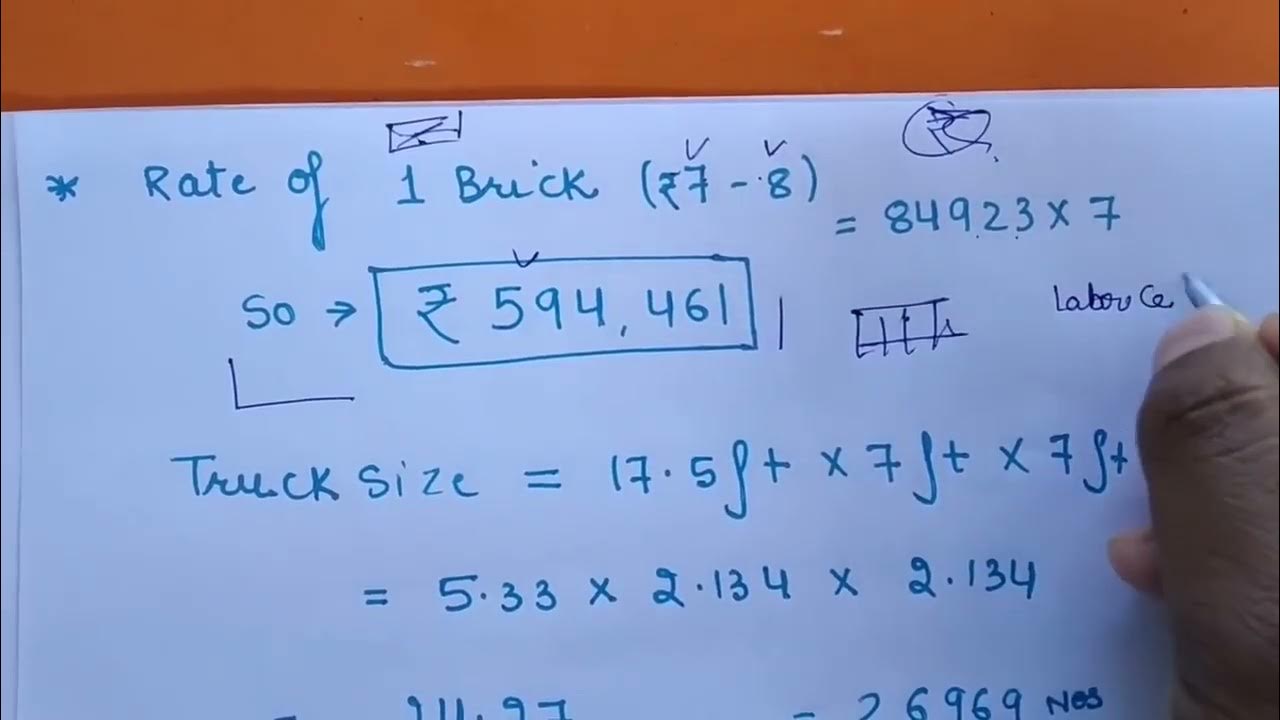 * Rate of 1 Brick (₹7 - 8)
= 84923 x 7
So → ₹ 594,461
labour Ce
Truck size = 17.5ft x 7ft x 7ft
= 5.33 x 2.134 x 2.134
= 26969 Nos